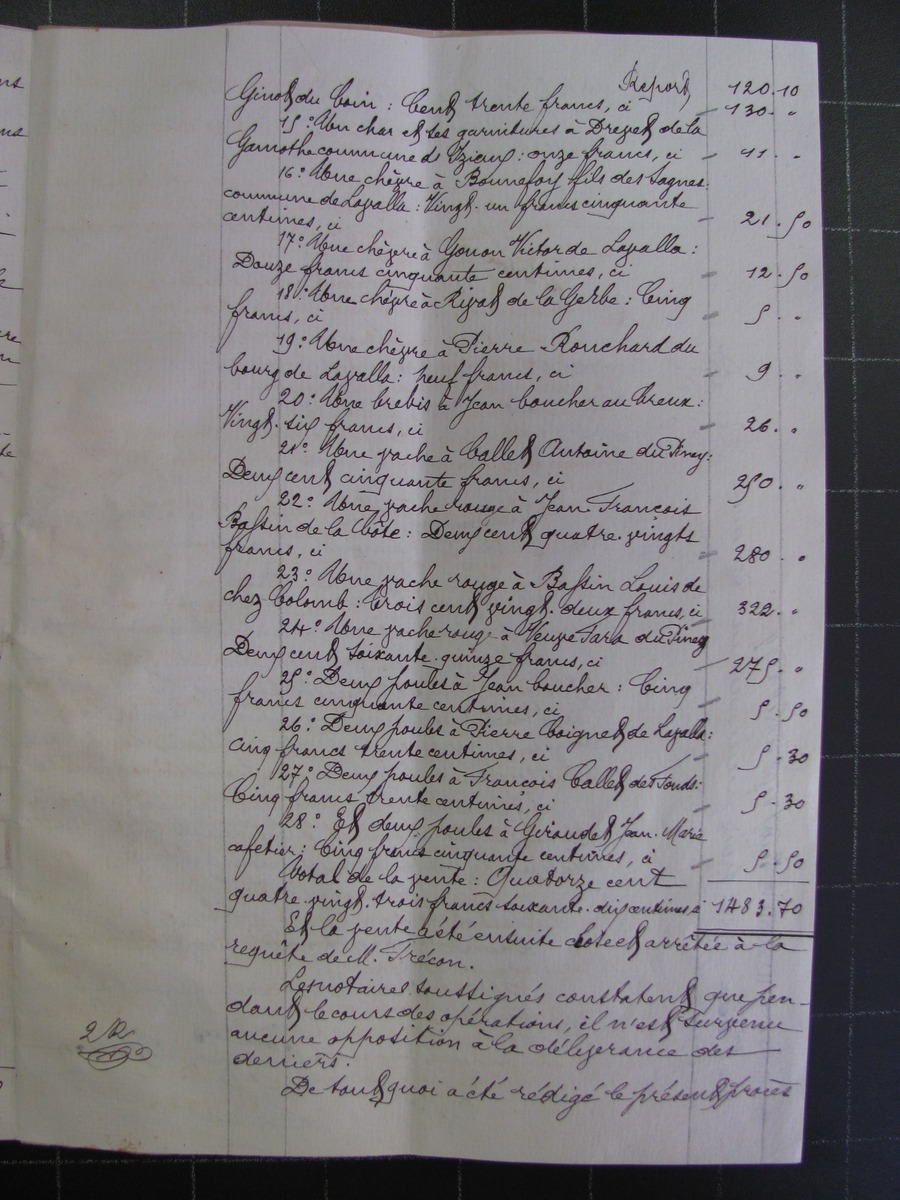 Report 120.10
Ginot du Coin : Cent trente francs, ci 130. "
15° Un char et ses garnitures à Drevet de la
Gamothe commune de Izieux : onze francs, ci 11. "
16° Une chèvre à Bonnefoy fils des Sagnes
commune de Lavalla : Vingt-un francs cinquante
centimes, ci 21.50
17° Une chèvre à Gonon Victor de Lavalla :
Douze francs cinquante centimes, ci 12.50
18° Une chèvre à Rivat de la Gerbe : Cinq
francs, ci 5. "
19° Une chèvre à Pierre Ronchard du
bourg de Lavalla : neuf francs, ci 9. "
20° Une brebis à Jean boucher au Creux :
Vingt-six francs, ci 26. "
21° Une vache à Callet Antoine du Piney :
Deux cent cinquante francs, ci 250. "
22° Une vache rouge à Jean-François
Bassin de la Côte : Deux cent quatre-vingts
francs, ci 280. "
23° Une vache rouge à Bassin Louis de
chez Colomb : trois cent vingt-deux francs, ci 322. "
24° Une vache rouge à Veuve Tara du Piney
Deux cent soixante-quinze francs, ci 275. "
25° Deux poules à Jean boucher : Cinq
francs cinquante centimes, ci 5.50
26° Deux poules à Pierre Coignet de Lavalla :
cinq francs trente centimes, ci 5.30
27° Deux poules à François Callet des Fonds :
Cinq francs trente centimes, ci 5.30
28° Et deux poules à Giraudet Jean-Marie
cafetier : Cinq francs cinquante centimes, ci 5.50
Total de la vente : Quatorze cent
quatre-vingt-trois francs soixante-dix centimes, ci 1483.70
Et la vente a été ensuite close et arrêtée à la
requête de M. Frécon.
Les notaires soussignés constatent que pen-
dant le cours des opérations, il n'est survenu
aucune opposition à la délivrance des
deniers.
De tout quoi a été rédigé le présent procès